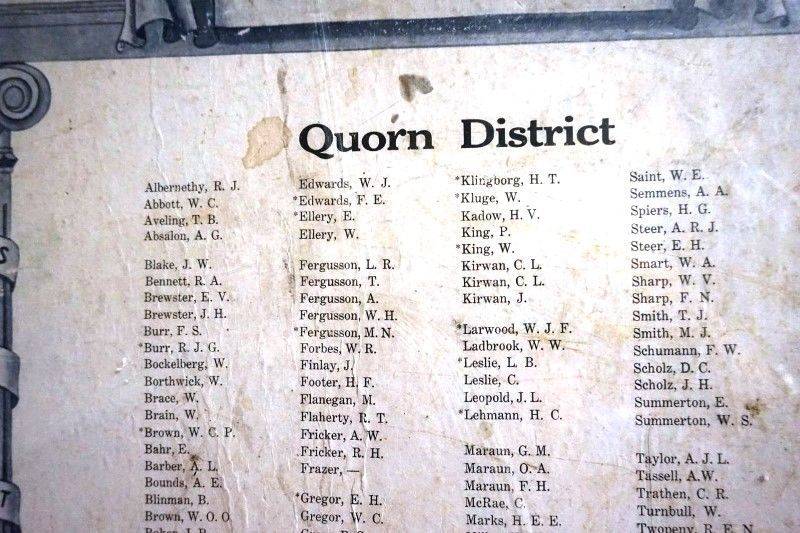 Quorn District
Albernethy, R. J.
Abbott, W. C.
Aveling, T. B.
Absalon, A. G.
Blake, J. W.
Bennett, R. A.
Brewster, E. V.
Brewster, J. H.
Burr, F. S.
*Burr, R. J. G.
Bockelberg, W.
Borthwick, W.
Brace, W.
Brain, W.
*Brown, W. C. P.
Bahr, E.
Barber, A. L.
Bounds, A. E.
Blinman, B.
Brown, W. O. O
Edwards, W. J.
*Edwards, F. E.
*Ellery, E.
Ellery, W.
Fergusson, L. R.
Fergusson, T.
Fergusson, A.
Fergusson, W. H.
*Fergusson, M. N.
Forbes, W. R.
Finlay, J.
Footer, H. F.
Flanegan, M.
Flaherty, R. T.
Fricker, A. W.
Fricker, R. H.
Frazer, —
*Gregor, E. H.
Gregor, W. C.
*Klingborg, H. T.
*Kluge, W.
Kadow, H. V.
King, P.
*King, W.
Kirwan, C. L.
Kirwan, C. L.
Kirwan, J.
*Larwood, W. J. F.
Ladbrook, W. W.
*Leslie, L. B.
Leslie, C.
Leopold, J. L.
*Lehmann, H. C.
Maraun, G. M.
Maraun, O. A.
Maraun, F. H.
McRae, C.
Marks, H. E. E.
Saint, W. E.
Semmens, A. A.
Spiers, H. G.
Steer, A. R. J.
Steer, E. H.
Smart, W. A.
Sharp, W. V.
Sharp, F. N.
Smith, T. J.
Smith, M. J.
Schumann, F. W.
Scholz, D. C.
Scholz, J. H.
Summerton, E.
Summerton, W. S.
Taylor, A. J. L.
Tassell, A.W.
Trathen, C. R.
Turnbull, W.
Twopeny, R. E. N.